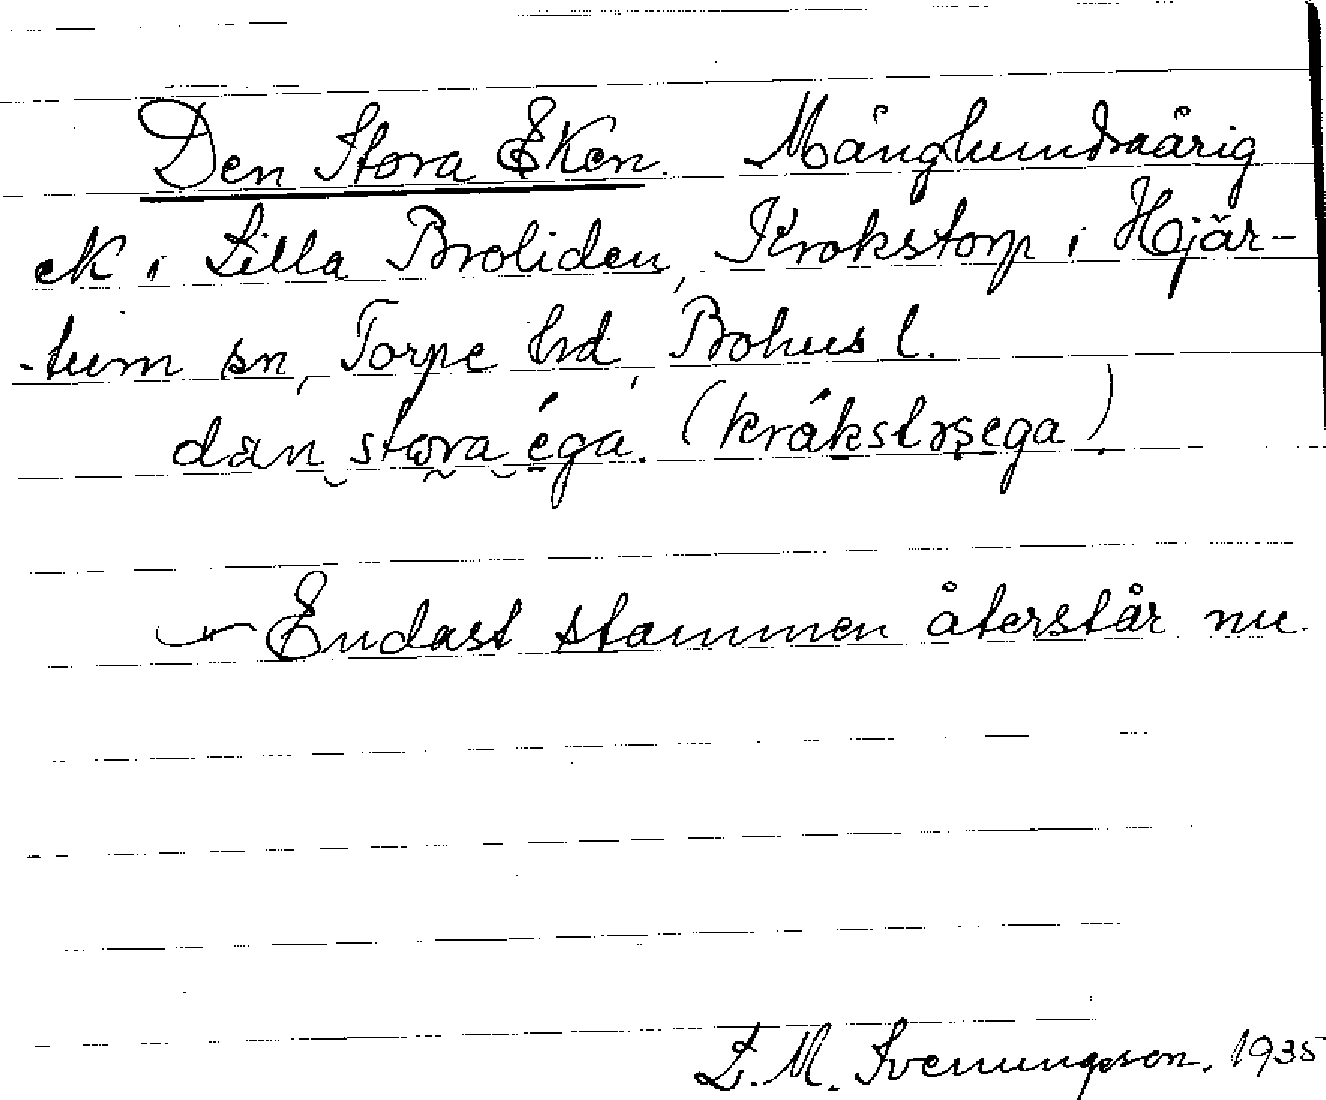 Den Stora Eken. Månghundraårig
ek i Lilla Broliden, Krokstorp i Hjär-
-tum sn, Torpe hd, Bohus l.
dän stora éga. (kråkstrsega)
Endast stammen återstår nu.
L. M. Svenungsson. 1935